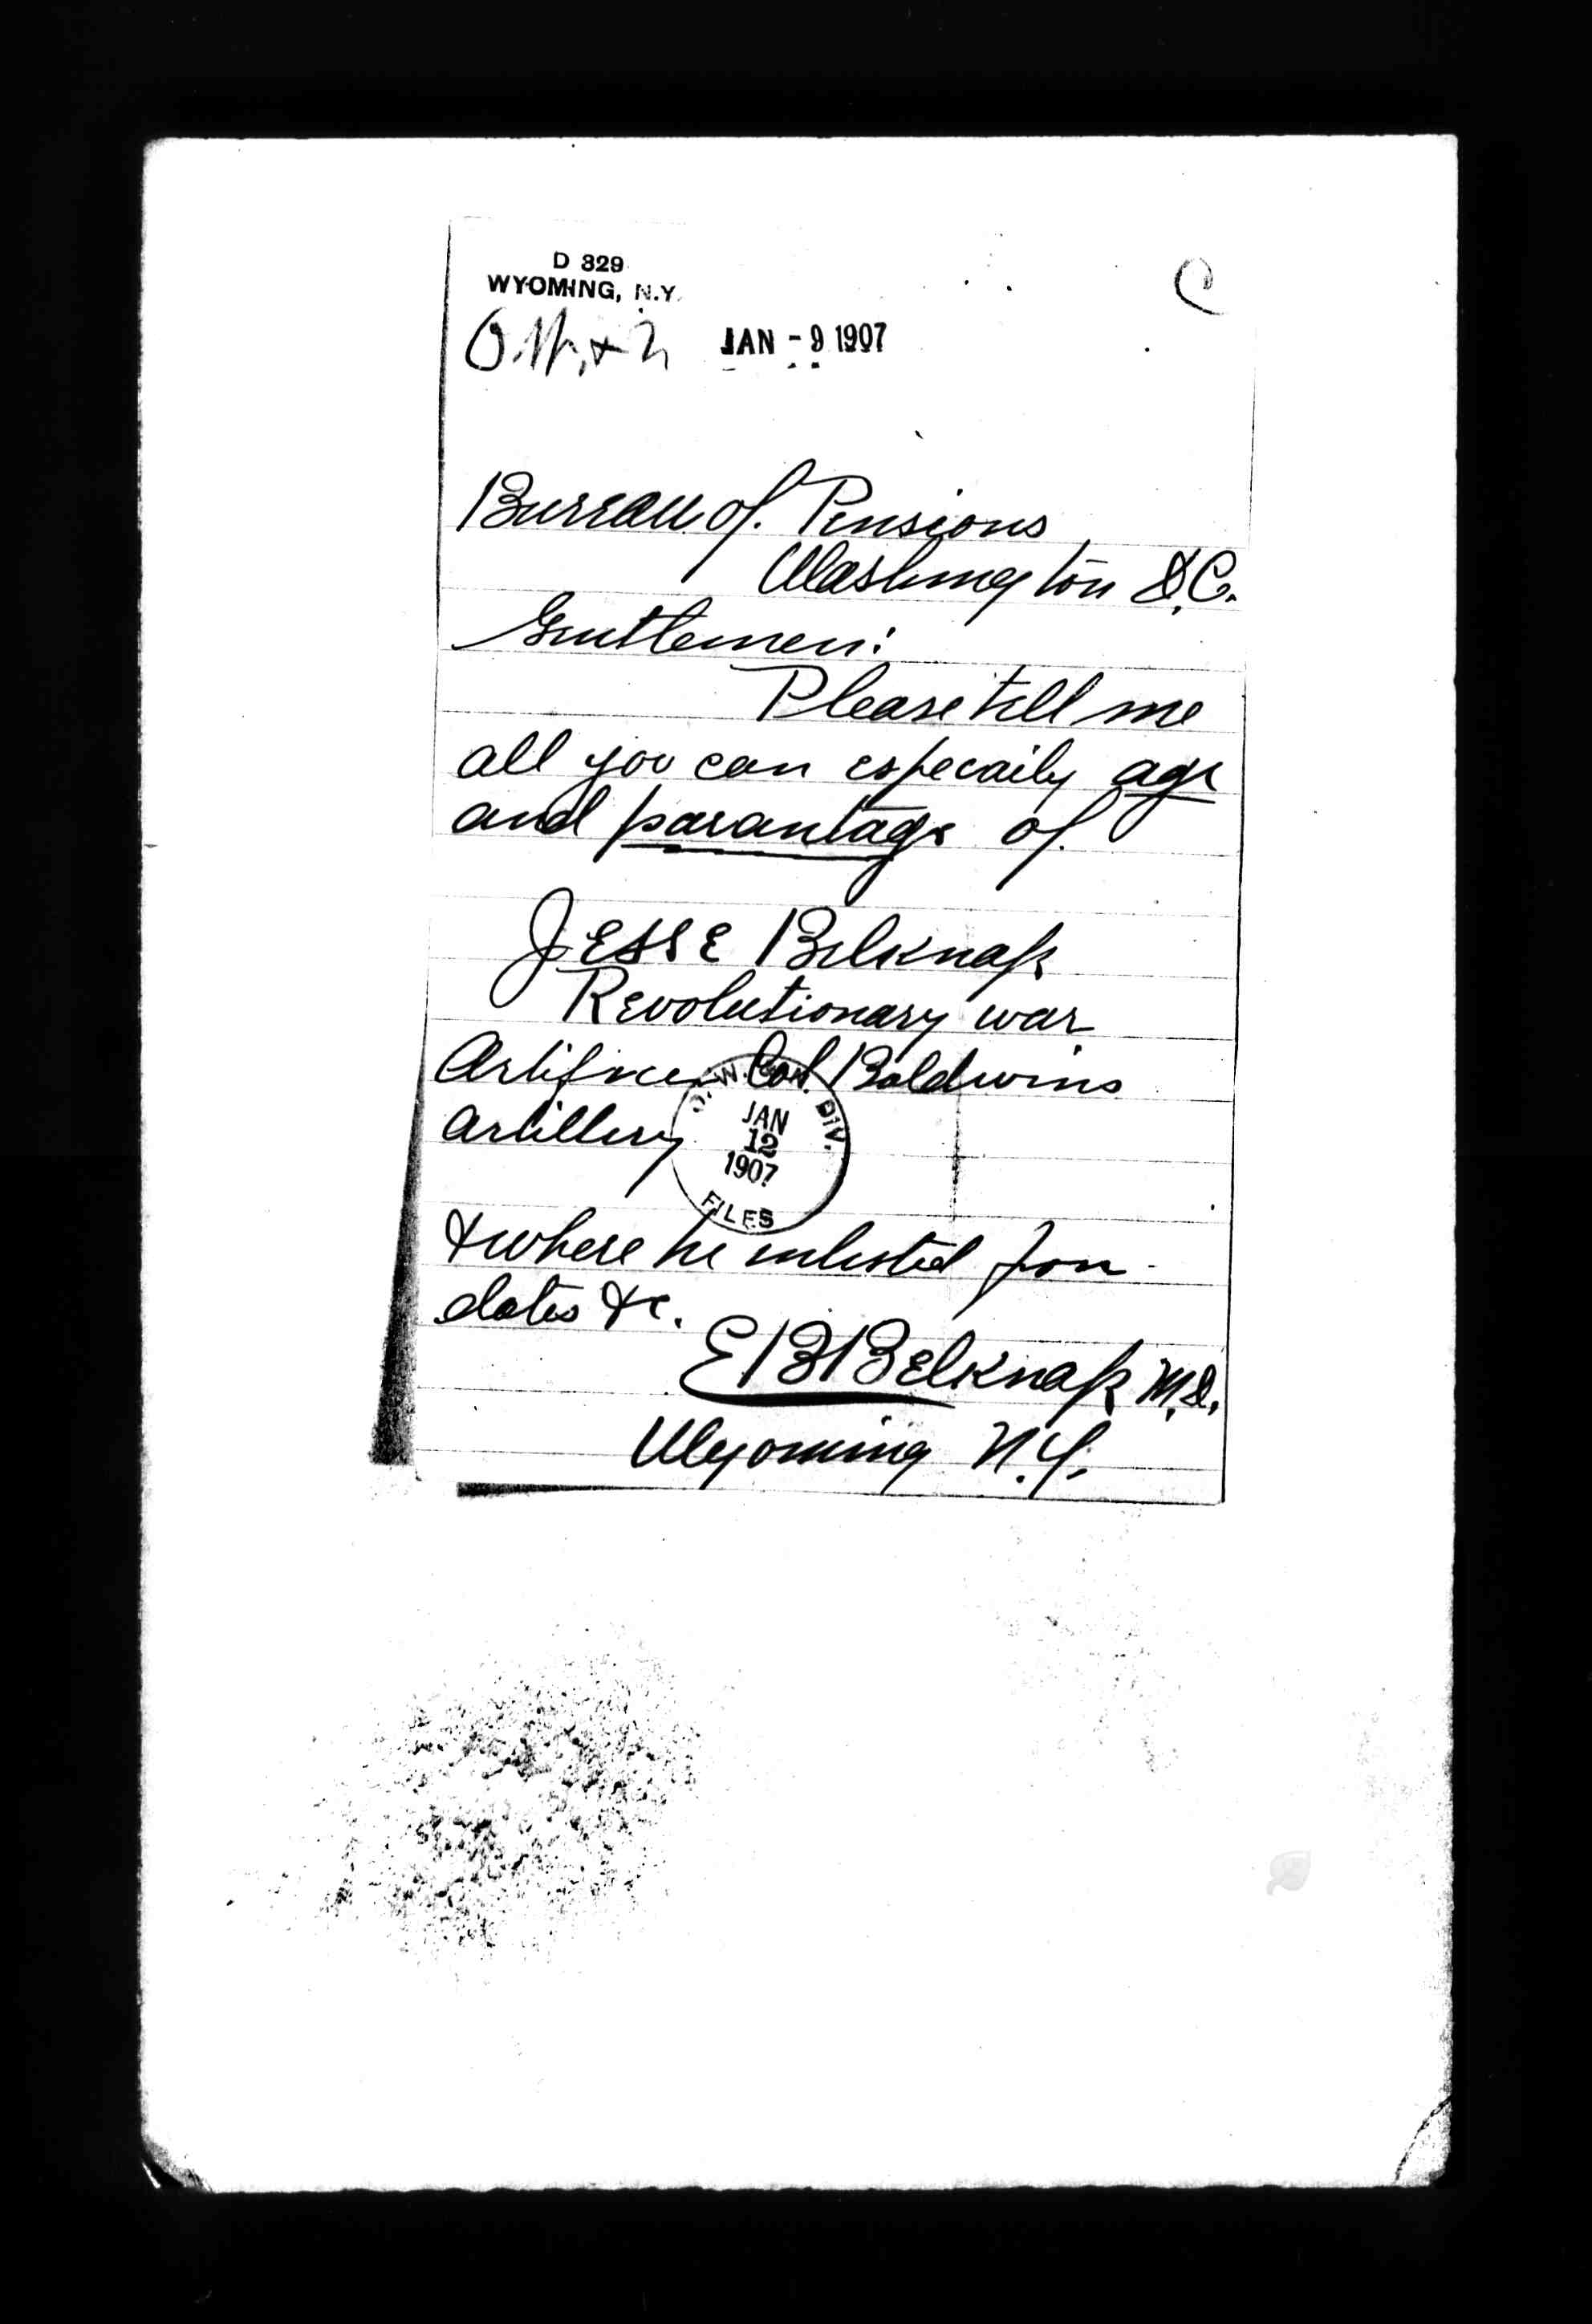 D 329
WYOMING, N.Y.
C
JAN - 9 1907
Bureau of Pensions
Washington D.C.
Gentlemen:
Please tell me
all you can especaily age
and parantage of
Jesse Belknap
Revolutionary war
Artificer Col Baldwins
Artillery
O. W. & N. DIV.
JAN
12
1907
FILES
& where he enlisted from
dates &c.
E B Belknap M.D.
Wyoming N.Y.